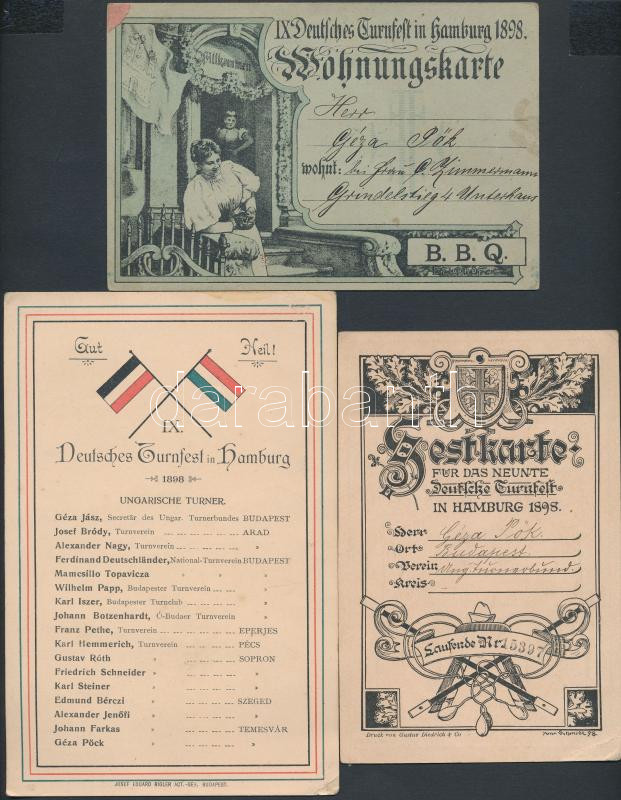 IX. Deutsches Turnfest in Hamburg 1898.
Wohnungskarte
Willkommen
Herr
Géza Pök
wohnt: bei Frau C. Zimmermann
Grindelstieg 4 Unterhaus
B. B. Q.
Gut Heil!
IX.
Deutsches Turnfest in Hamburg
1898
UNGARISCHE TURNER.
Géza Jász, Secretär des Ungar. Turnerbundes BUDAPEST
Josef Bródy, Turnverein ARAD
Alexander Nagy, Turnverein "
Ferdinand Deutschländer, National-Turnverein BUDAPEST
Mamcsillo Topavicza " "
Wilhelm Papp, Budapester Turnverein "
Karl Iszer, Budapester Turnclub "
Johann Botzenhardt, Ó-Budaer Turnverein "
Franz Pethe, Turnverein EPERJES
Karl Hemmerich, Turnverein PÉCS
Gustav Róth " SOPRON
Friedrich Schneider " "
Karl Steiner " "
Edmund Bérczi " SZEGED
Alexander Jenőfi " "
Johann Farkas " TEMESVÁR
Géza Pöck " "
JOSEF EDUARD RIGLER ACT.-GES. BUDAPEST.
Festkarte
FÜR DAS NEUNTE
Deutsche Turnfest
IN HAMBURG 1898.
Herr Géza Pök
Ort Budapest
Verein Ung. Turnerbund.
Kreis
Laufende Nr. 15397
Druck von Gustav Diedrich & Co
darabanth